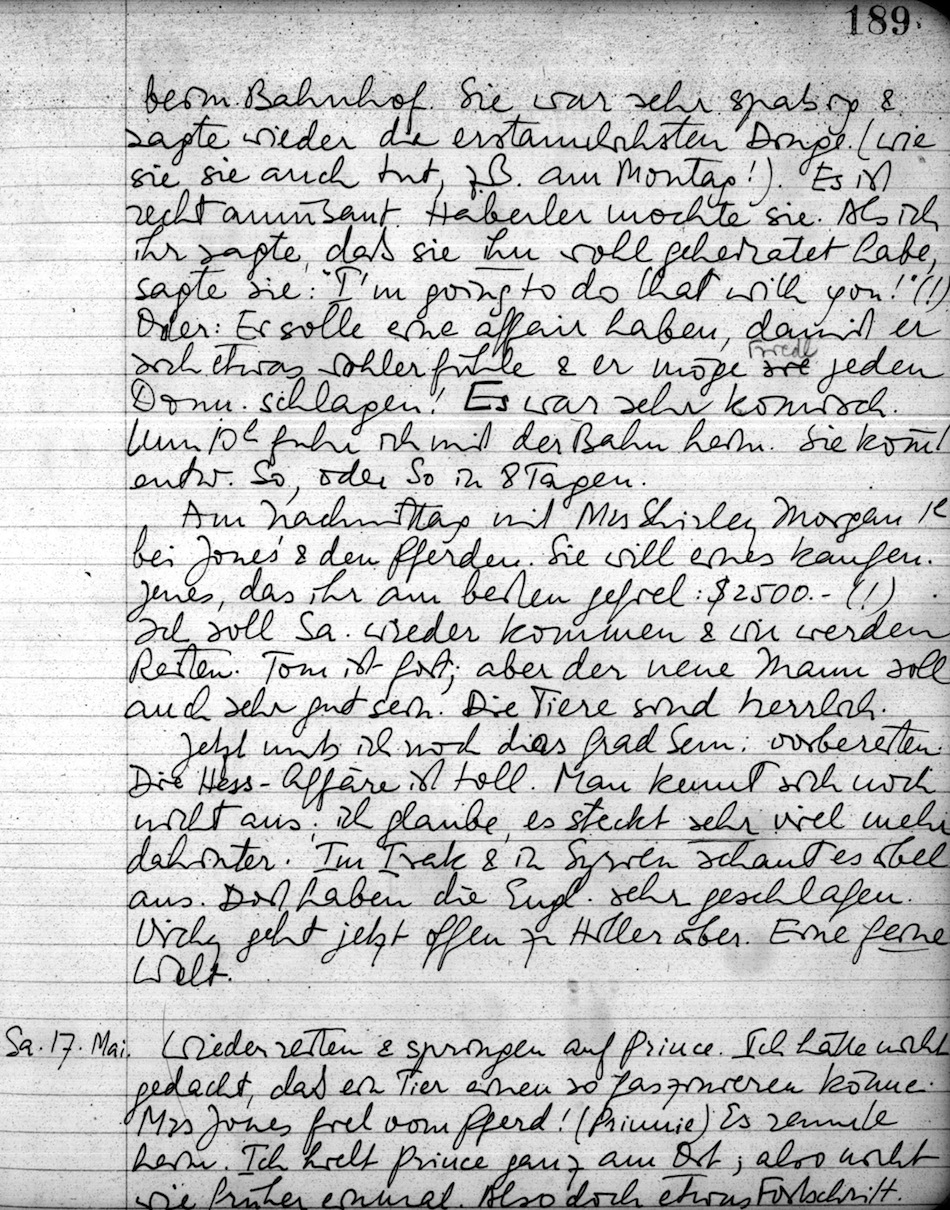 189.
beim Bahnhof. Sie war sehr spassig &
sagte wieder die erstaunlichsten Dinge. (wie
sie sie auch tut, z.B. am Montag!). Es ist
recht amüsant. Haberler mochte sie. Als ich
ihr sagte, daß sie ihn wohl geheiratet habe,
sagte sie: "I'm going to do that with you!" (!)
Oder: Er solle eine affair haben, damit er
sich etwas wohler fühle & er möge sie Friedl jeden
Donn. schlagen! Es war sehr komisch.
Um 10h fuhr ich mit der Bahn heim. Sie kom̄t
entw. So, oder So in 8 Tagen.
Am Nachmittag mit Mrs Shirley Morgan
bei Jones' & den Pferden. Sie will eines kaufen.
Jenes, das ihr am besten gefiel: $2500.- (!)
Ich soll Sa. wieder kommen & wir werden
Reiten. Tom ist fort; aber der neue Mann soll
auch sehr gut sein. Die Tiere sind herrlich.
Jetzt muß ich noch das Grad Sem. vorbereiten.
Die Hess-Affäre ist toll. Man kennt sich noch
nicht aus; ich glaube, es steckt sehr viel mehr
dahinter. Im Irak & in Syrien schaut es übel
aus. Dort haben die Engl. sehr geschlafen.
Vichy geht jetzt offen zu Hitler über. Eine feine
Welt.
Sa. 17. Mai. Wieder reiten & springen auf Prince. Ich hätte nicht
gedacht, daß ein Tier einen so faszinieren könne.
Mrs Jones fiel vom Pferd! (Primie) Es rannte
heim. Ich hielt Prince ganz am Ort; also nicht
wie früher einmal. Also doch etwas Fortschritt.